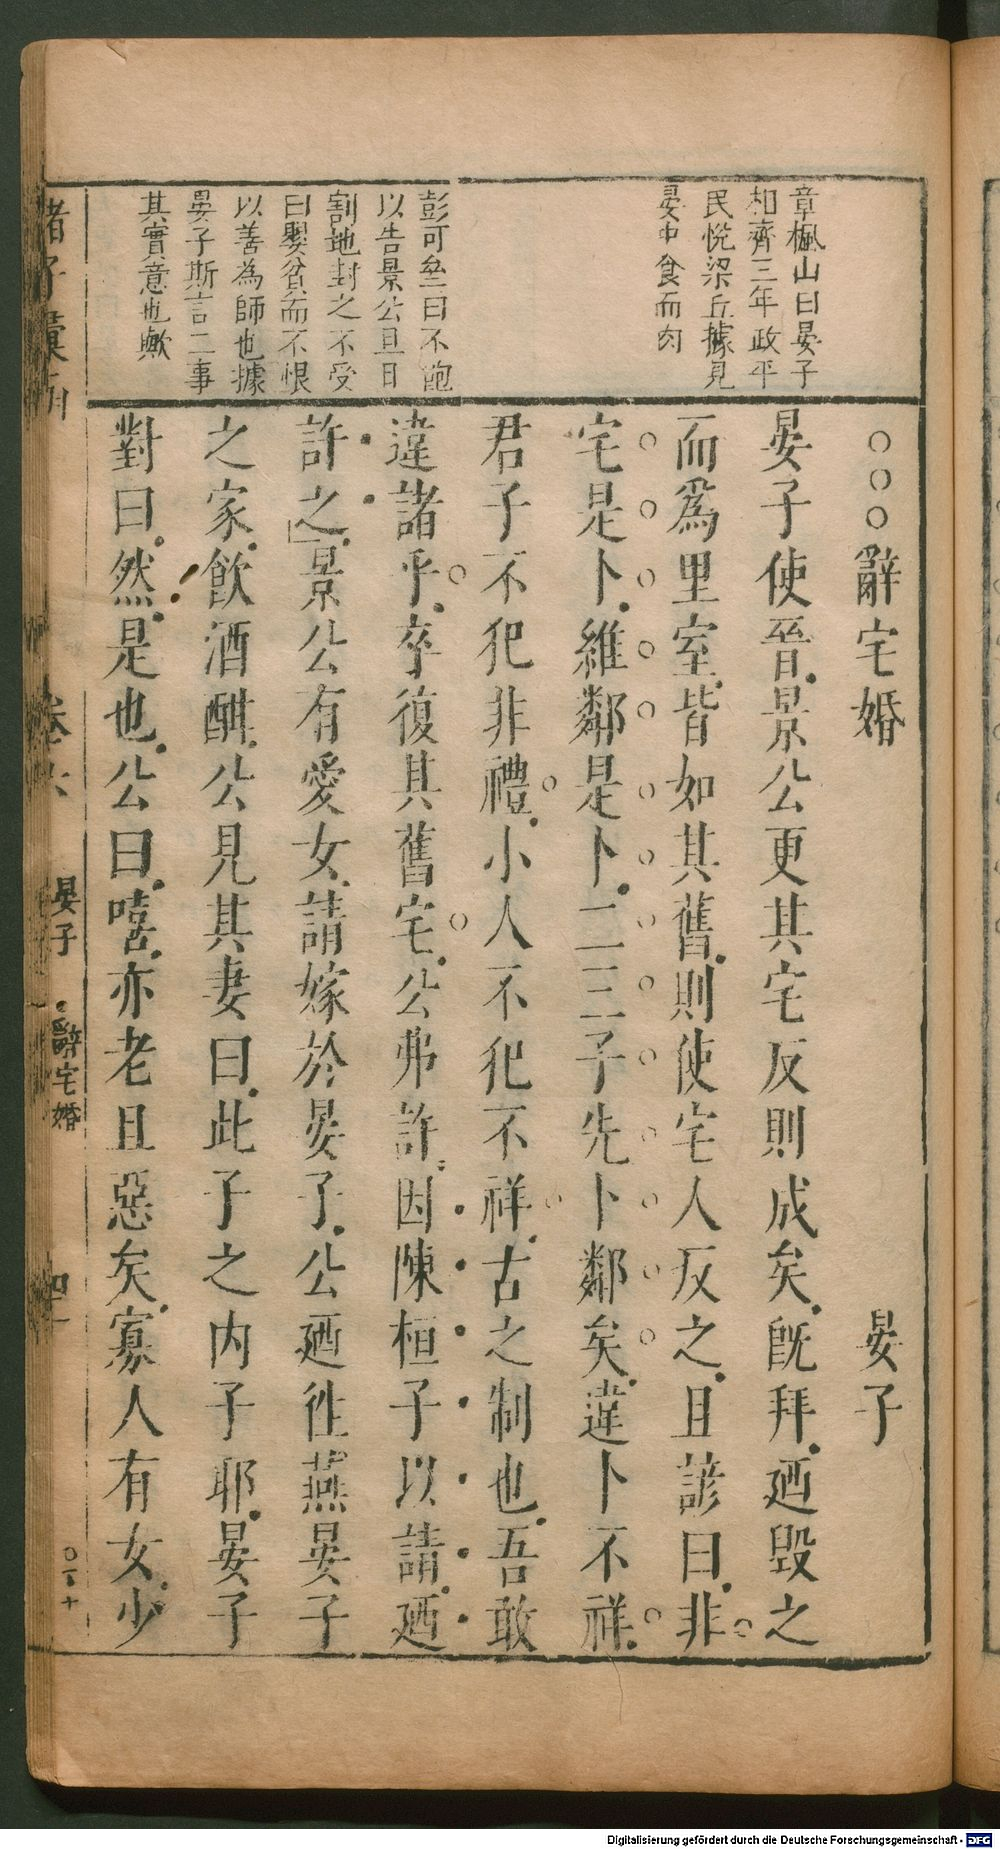 章楓山曰晏子
相齊三年政平
民悅梁丘據見
晏中食而肉
彭可㕘曰不飽
以告景公旦日
割地封之不受
曰嬰貧而不恨
以善為師也據
晏子斯言二事
其實意也歟
○○○辭宅婚 晏子
晏子使晉景公更其宅反則成矣旣拜廼毀之
而爲里室皆如其舊則使宅人反之且諺曰非
宅是卜維鄰是卜二三子先卜鄰矣違卜不祥
君子不犯非禮小人不犯不祥古之制也吾敢
違諸乎卒復其舊宅公弗許因陳桓子以請廼
許之景公有愛女請嫁於晏子公廼徃燕晏子
之家飮酒酣公見其妻曰此子之内子耶晏子
對曰然是也公曰嘻亦老且惡矣寡人有女少
諸子彙函 卷六 晏子 辭宅婚
Digitalisierung gefördert durch die Deutsche Forschungsgemeinschaft - DFG